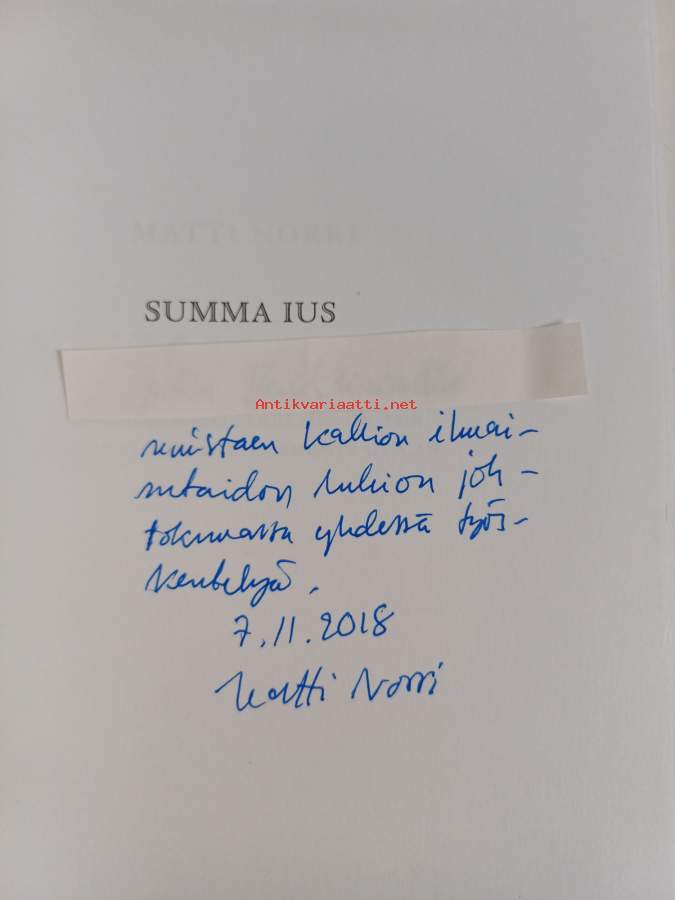 MATTI NORRI
SUMMA IUS
Antikvariaatti.net
muistaen Kallion ilmai-
sutaidon lukion joh-
tokunnassa yhdessä työs-
kentelyä.
7.11.2018
Matti Norri